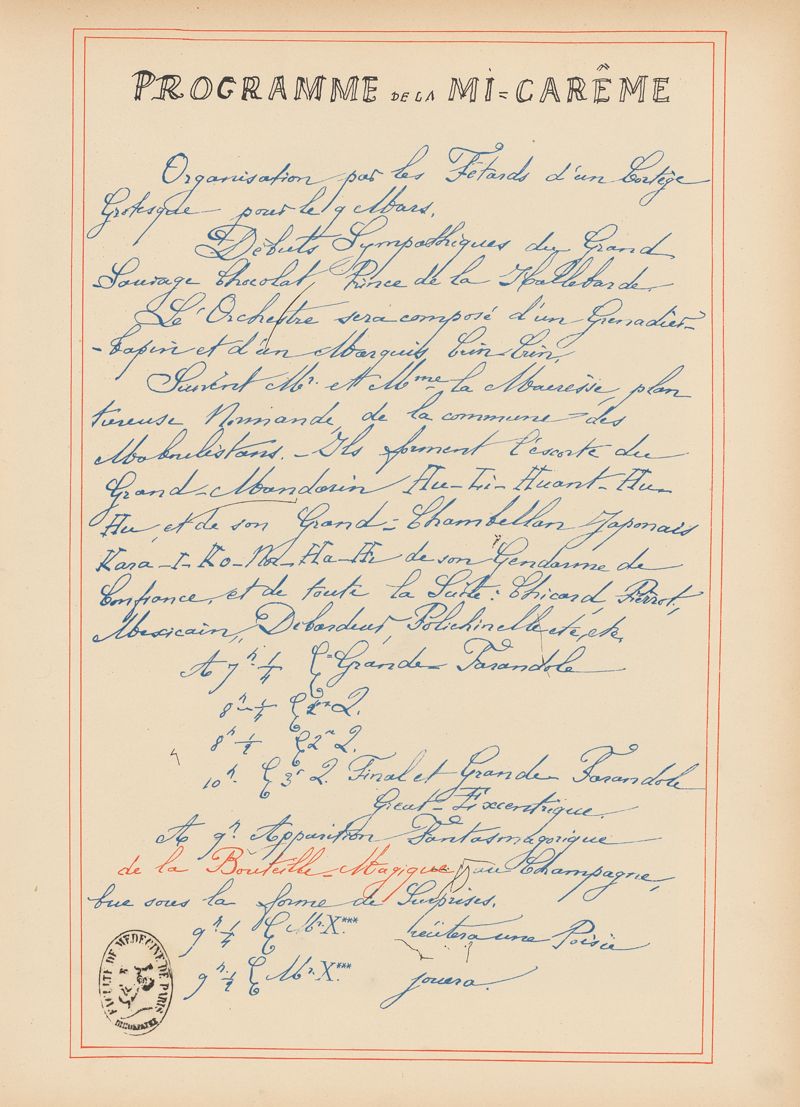 PROGRAMME DE LA MI=CARÊME
Organisation par les Fêtards d'un Cortège
Grotesque pour le 9 Mars.
Débuts Sympathiques du Grand
Sauvage Chocolat, Prince de la Hallebarde
Le Orchestre sera composé d'un Grenadier-
-tapin et d'un Marquis, Crin-Crin.
Suivent Mr. et Mme la Mairesse, plan
tureuse Normande, de la commune des
Maboulistans. - Ils forment l'escorte du
Grand-Mandarin Hu-Li-Huant-Hu-
Hu, et de son Grand=Chambellan Japonais
Kara-I-Ko-No-Ha-Hi de son Gendarme de
Confiance, et de toute la Suite: Chicard, Pierrot,
Mexicain, Débardeur, Polichinelle etc, etc.
A 7h 1/4 Grande- Farandole
8h 1/4 1er Q.
8h 1/2 2e Q.
10h. 3e Q. Final et Grande Farandole
Great-Excentrique.
A 9h. Apparition Fantasmagorique
de la Bouteille-Magique au Champagne,
bue sous la forme de Surprises.
9h 1/4 Mr. X*** récitera une Poésie
9h 1/2 Mr. X*** jouera.
FACULTÉ DE MÉDECINE DE PARIS